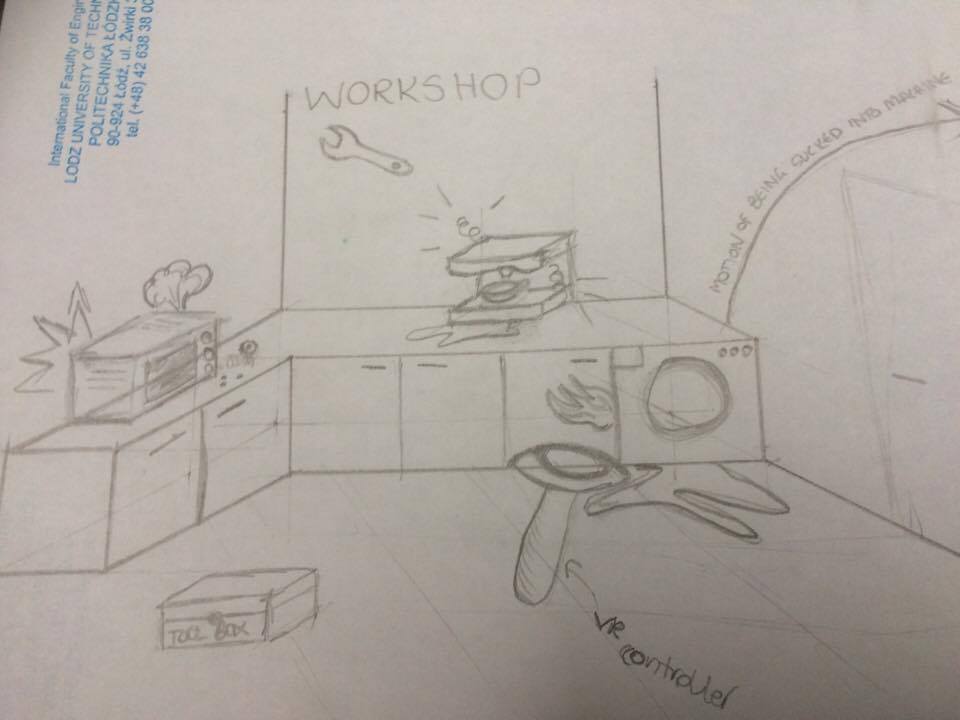 International Faculty of Engin
LODZ UNIVERSITY OF TECHN
POLITECHNIKA ŁÓDZK
90-924 Łódź, ul. Żwirki 3
tel. (+48) 42 638 38 00
WORKSHOP
MOTION OF BEING SUCKED INTO MACHINE
TOOL BOX
VR
controller